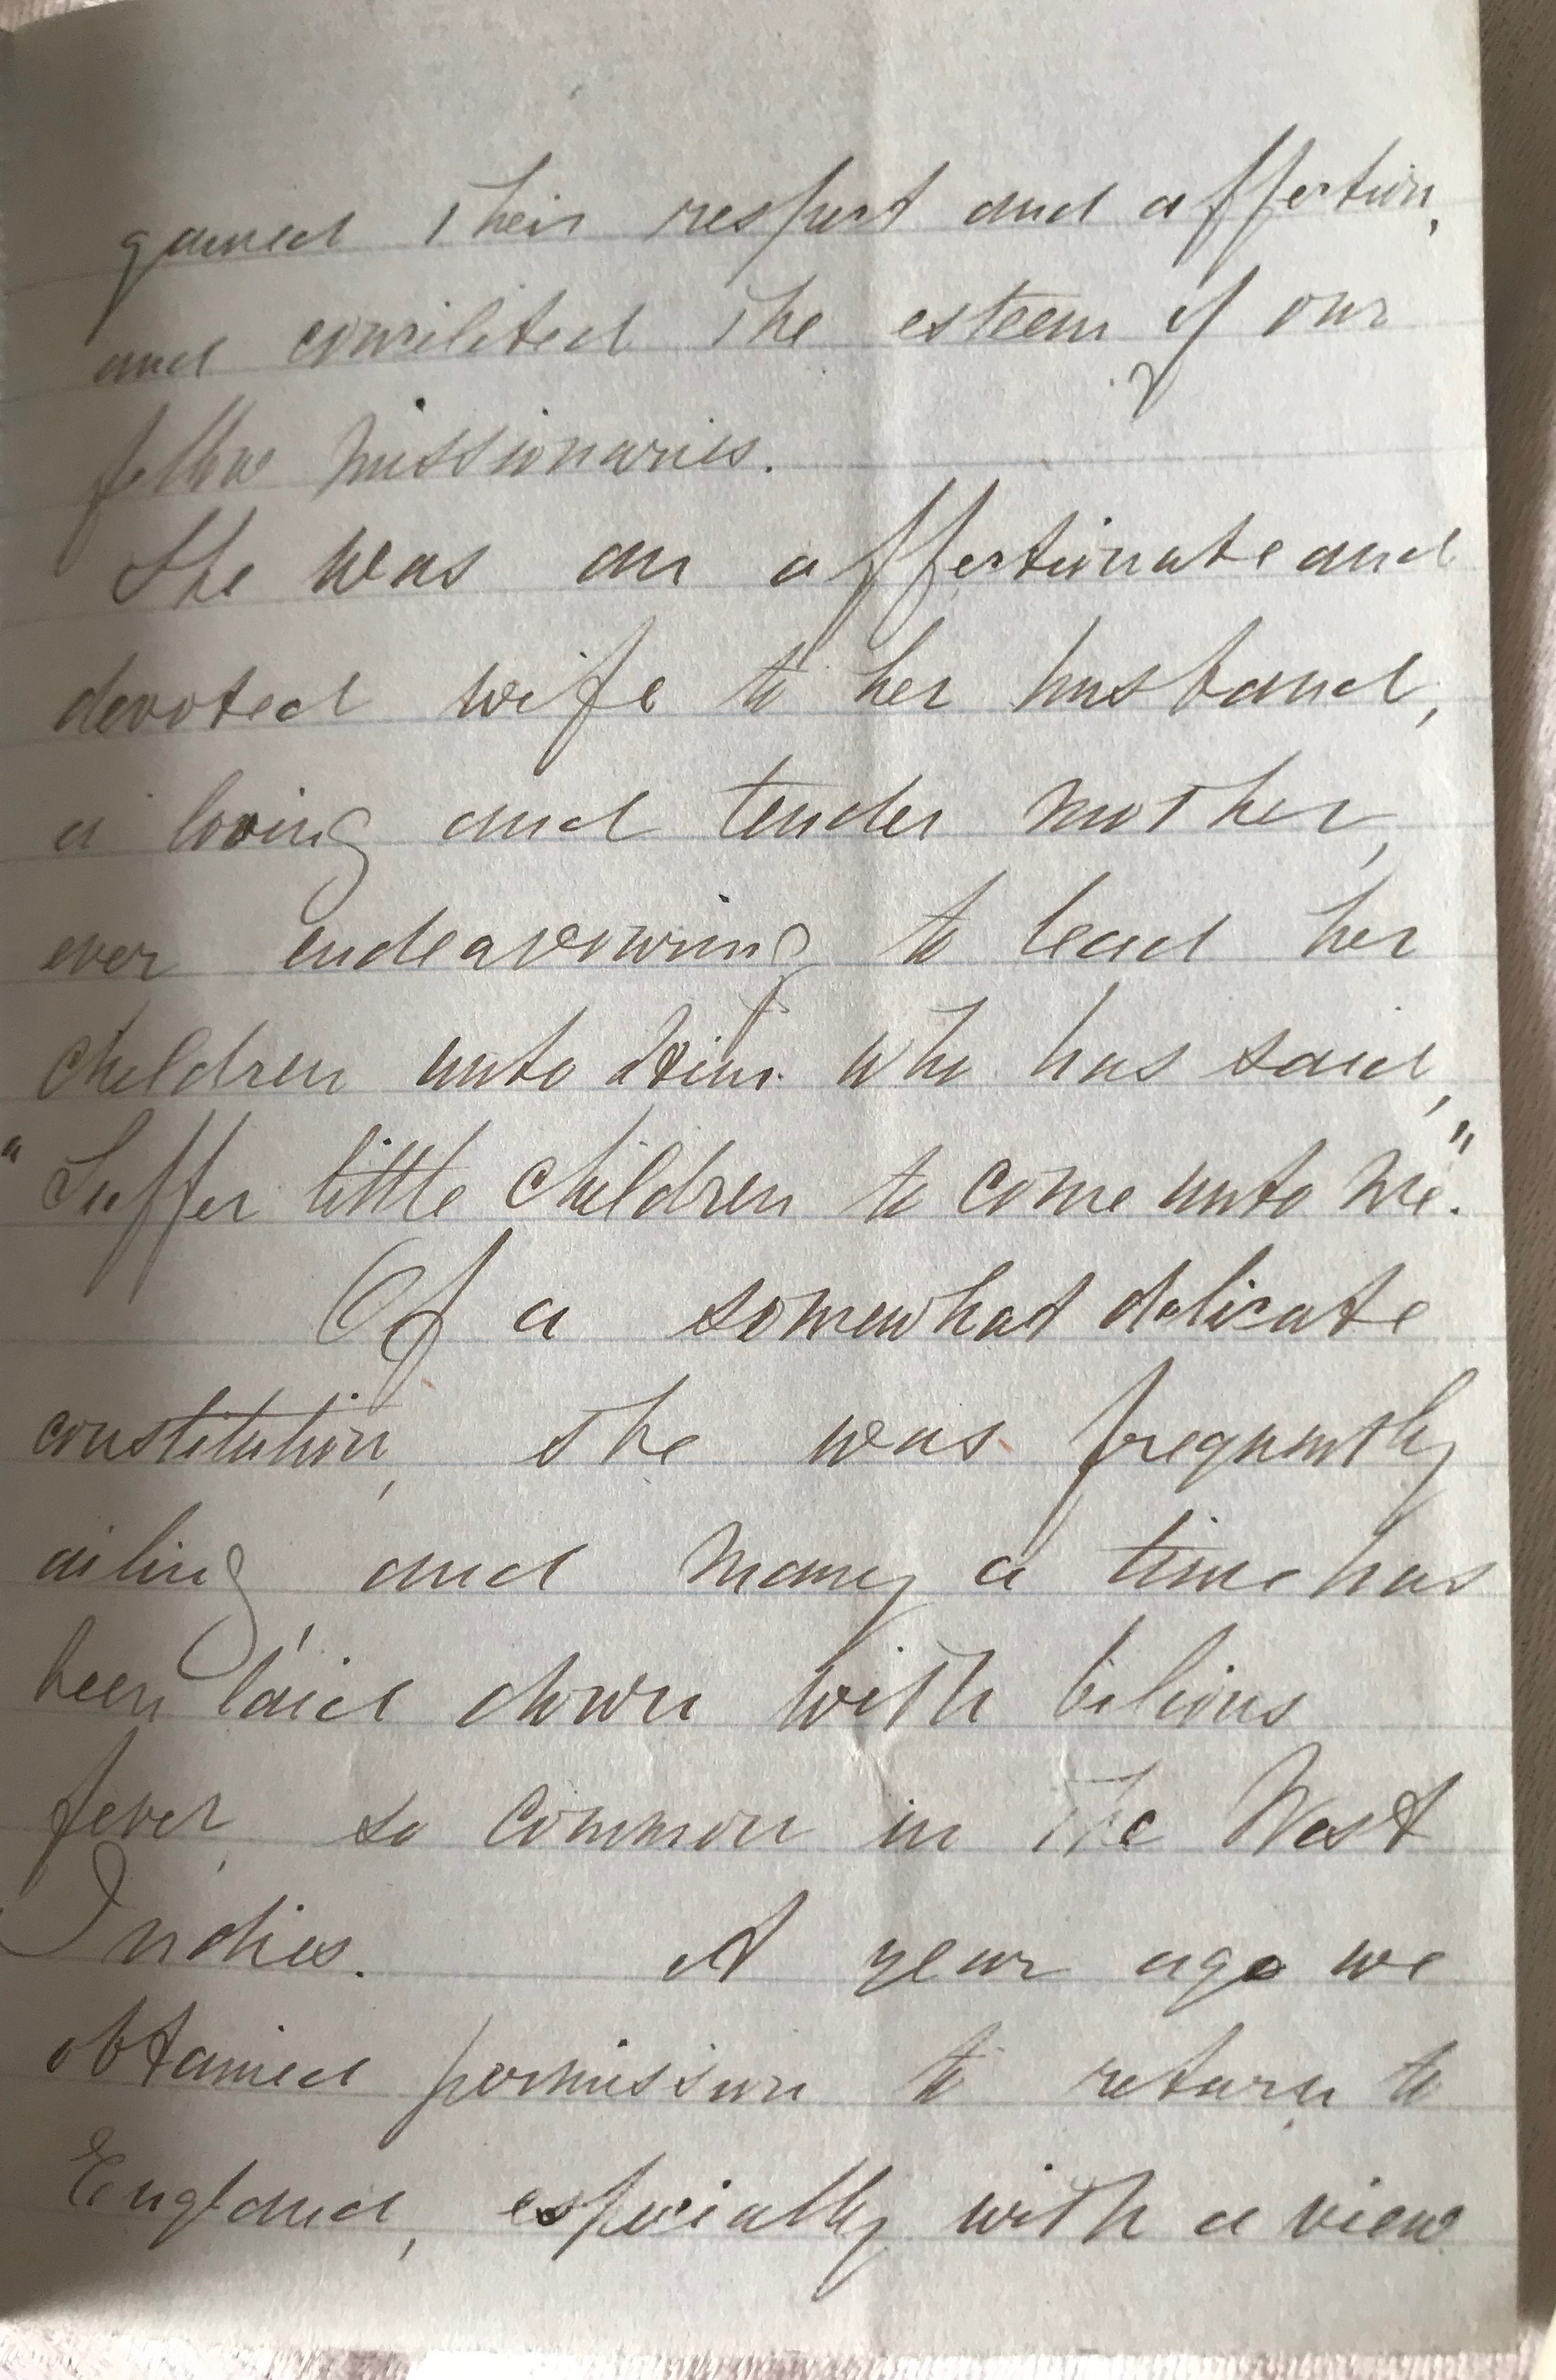 gained their respect and affection,
and conciliated the esteem of our
fellow missionaries.
She was an affectionate and
devoted wife to her husband,
a loving and tender mother,
ever endeavouring to lead her
children unto Him who has said,
"Suffer little children to come unto me".
Of a somewhat delicate
constitution, she was frequently
ailing and many a time has
been laid down with bilious
fever, so common in the West
Indies. A year ago we
obtained permission to return to
England, especially with a view